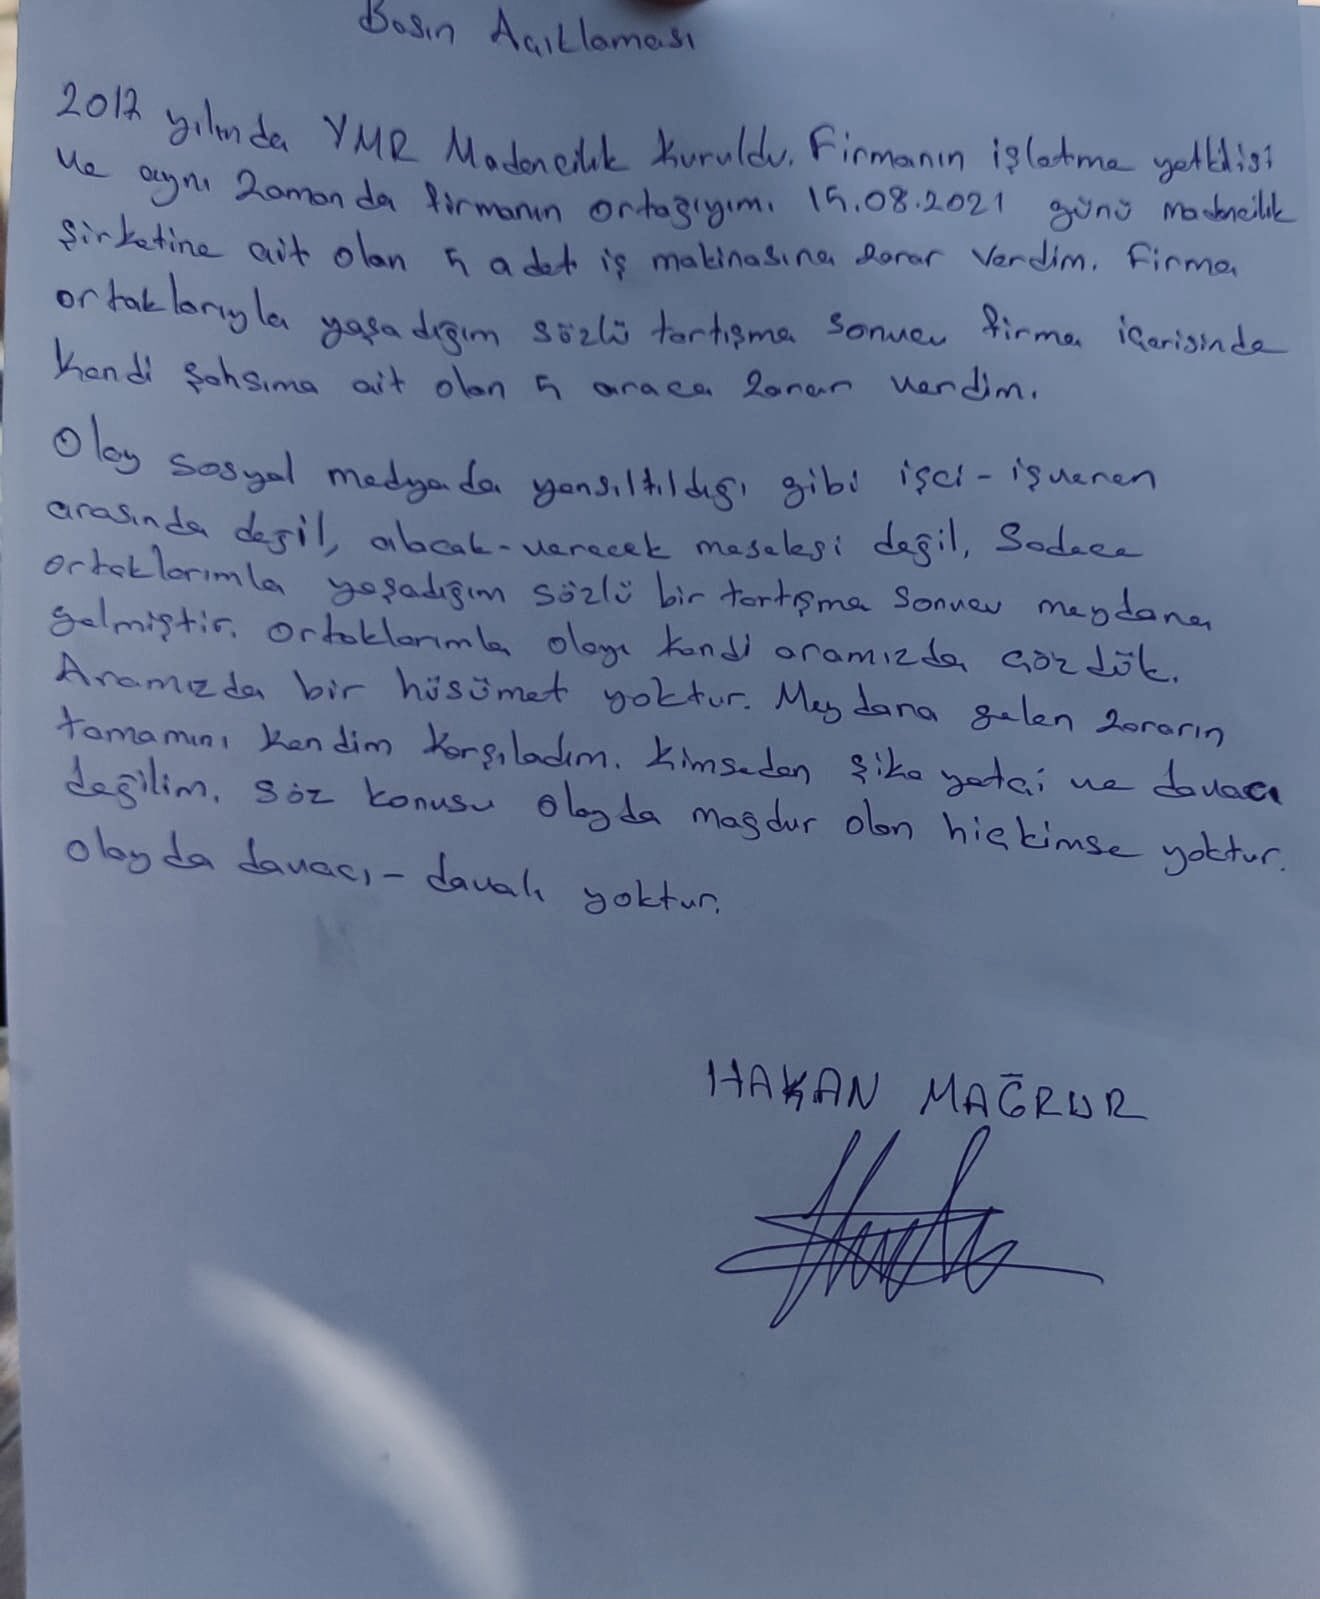 Basın Açıklaması
2017 yılında YMR Madencilik kuruldu. Firmanın işletme yetkilisi
ve aynı zamanda firmanın ortağıyım. 15.08.2021 günü madencilik
şirketine ait olan 5 adet iş makinasına zarar verdim. Firma
ortaklarıyla yaşadığım sözlü tartışma sonucu firma içerisinde
kendi şahsıma ait olan 5 araca zarar verdim.
Olay sosyal medyada yansıltıldığı gibi işci-işveren
arasında değil, alacak-verecek meselesi değil, Sadece
ortaklarımla yaşadığım sözlü bir tartışma sonucu meydana
gelmiştir. Ortaklarımla olayı kendi aramızda çözdük.
Aramızda bir hüsümet yoktur. Meydana gelen zararın
tamamını kendim karşıladım. Kimseden şikayetçi ve davacı
değilim. Söz konusu olayda mağdur olan hiçkimse yoktur.
olayda davacı-davalı yoktur.
HAKAN MAĞRUR